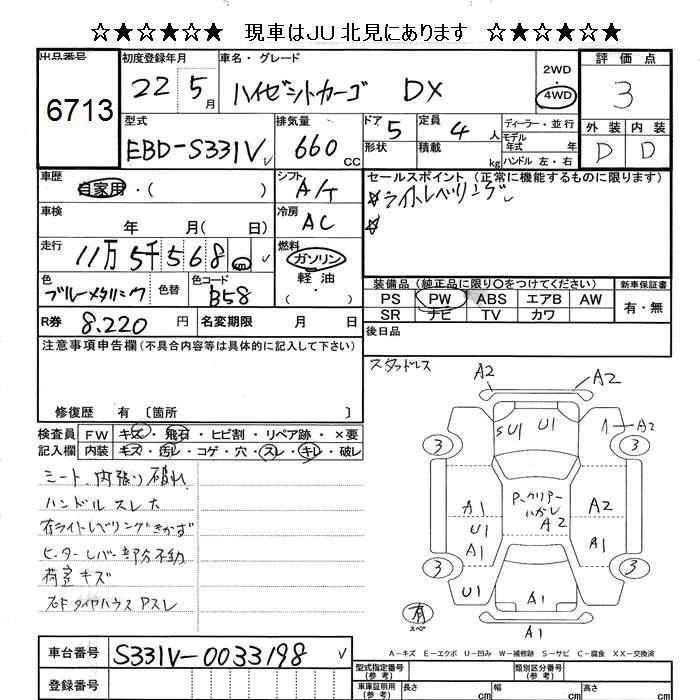 ☆★☆★☆★☆ 現車はJU北見にあります ☆★☆★☆★☆
出品番号
6713
初度登録年月
22 5月
車名・グレード
ハイゼットカーゴ DX
2WD
・
4WD
評価点
3
外装 内装
D D
型式
EBD-S331V
排気量
660 CC
ドア 5
形状
定員 4人
積載 kg
ディーラー・並行
モデル年式 年式
ハンドル 左・右
車歴
自家用・( )
シフト
A/T
車検
年 月( 日)
冷房
AC
走行
11万5千568 km
燃料
ガソリン
軽油
( )
色
ブルーメタリック
色替
色コード
B58
R券 8,220円
名変期限 月 日
セールスポイント (正常に機能するものに限ります)
☆ライトレベリング
☆
装備品(純正品に限り○をつけてください)
PS PW ABS エアB AW
SR ナビ TV カワ
新車保証書
有・無
後日品
注意事項申告欄(不具合内容等は具体的に記入して下さい)
修復歴 有〔箇所 〕
検査員記入欄
FW キズ・飛石・ヒビ割・リペア跡・×要
内装 キズ・汚レ・コゲ・穴・スレ・キレ・破レ
シート、内張り破れ
ハンドルスレ大
右ライトレベリングきかず
ヒーターレバー部分不動
荷室キズ
右Fタイヤハウス Aスレ
スタッドレス
A2 A2
S U1 U1
A2
3 3
A1
U1
A1
P.クリアーハガレ
A2
A2
A1
3 3
U1
A1
A1
有
スペア
A-キズ E-エクボ U-凹み W-補修跡 S-サビ C-腐食 XX-交換済
車台番号 S331V-0033198
登録番号
型式指定番号(参考)
類別区分番号(参考)
車庫証明用(参考) 長さ cm 幅 cm 高さ cm